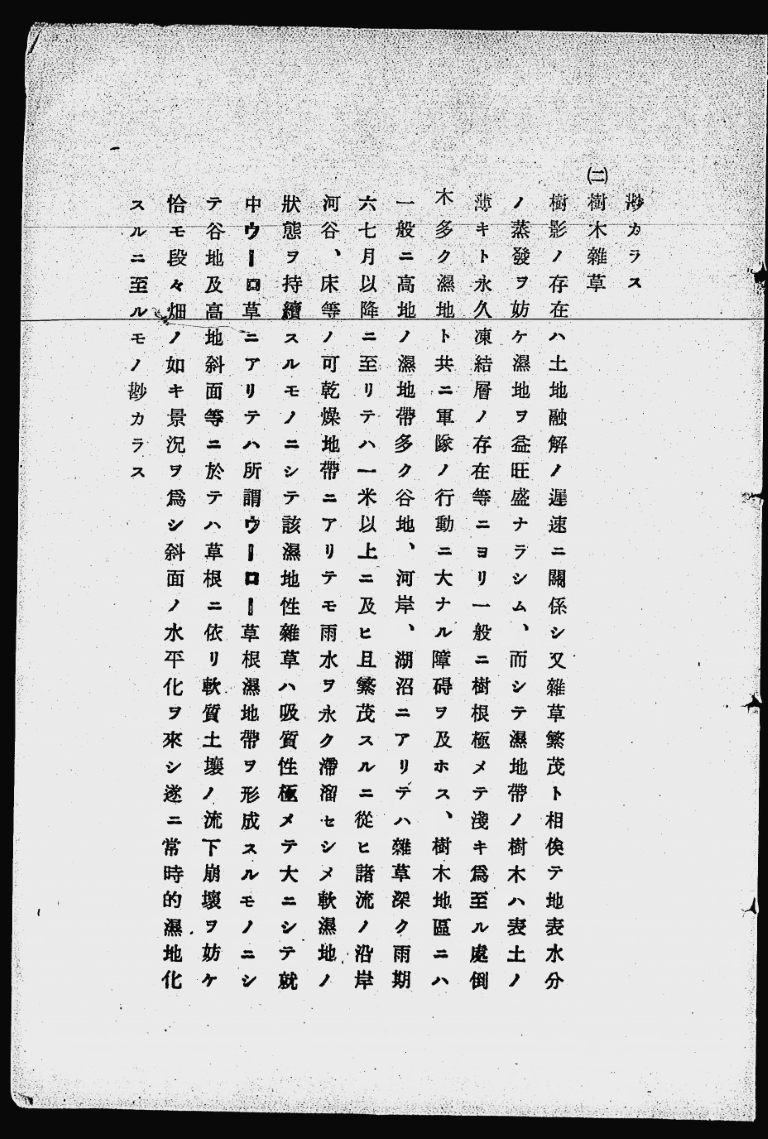 尠カラス
㈡樹木雜草
樹影ノ存在ハ土地融解ノ遲速ニ關係シ又雜草繁茂ト相俟テ地表水分
ノ蒸發ヲ妨ケ濕地ヲ益旺盛ナラシム、而シテ濕地帶ノ樹木ハ表土ノ
薄キト永久凍結層ノ存在等ニヨリ一般ニ樹根極メテ淺キ爲至ル處倒
木多ク濕地ト共ニ軍隊ノ行動ニ大ナル障碍ヲ及ホス、樹木地區ニハ
一般ニ高地ノ濕地帶多ク谷地、河岸、湖沼ニアリテハ雜草深ク雨期
六七月以降ニ至リテハ一米以上ニ及ヒ且繁茂スルニ從ヒ諸流ノ沿岸
河谷、床等ノ可乾燥地帶ニアリテモ雨水ヲ永ク滯溜セシメ軟濕地ノ
狀態ヲ持續スルモノニシテ該濕地性雜草ハ吸質性極メテ大ニシテ就
中ウーロ草ニアリテハ所謂ウーロー草根濕地帶ヲ形成スルモノニシ
テ谷地及高地斜面等ニ於テハ草根ニ依リ軟質土壤ノ流下崩壞ヲ妨ケ
恰モ段々畑ノ如キ景況ヲ爲シ斜面ノ水平化ヲ來シ遂ニ常時的濕地化
スルニ至ルモノ尠カラス